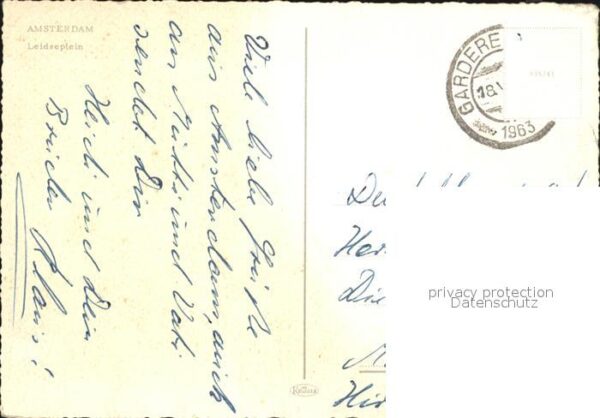 AMSTERDAM
Leidseplein
Viele liebe Grüße
aus Amsterdam, auch
an Mutti und Vati
sendet Dir
Heidi und Dein
Bruder Klaus!
GARDERE
18.V
1963
Her
Die
Hir
privacy protection
Datenschutz